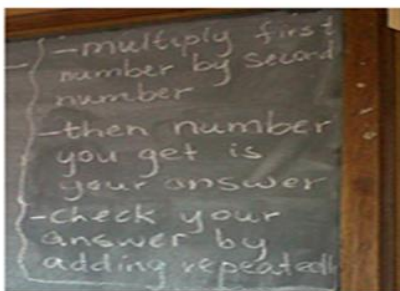 -multiply first
number by second
number
-then number
you get is
your answer
-check your
answer by
adding repeatedl